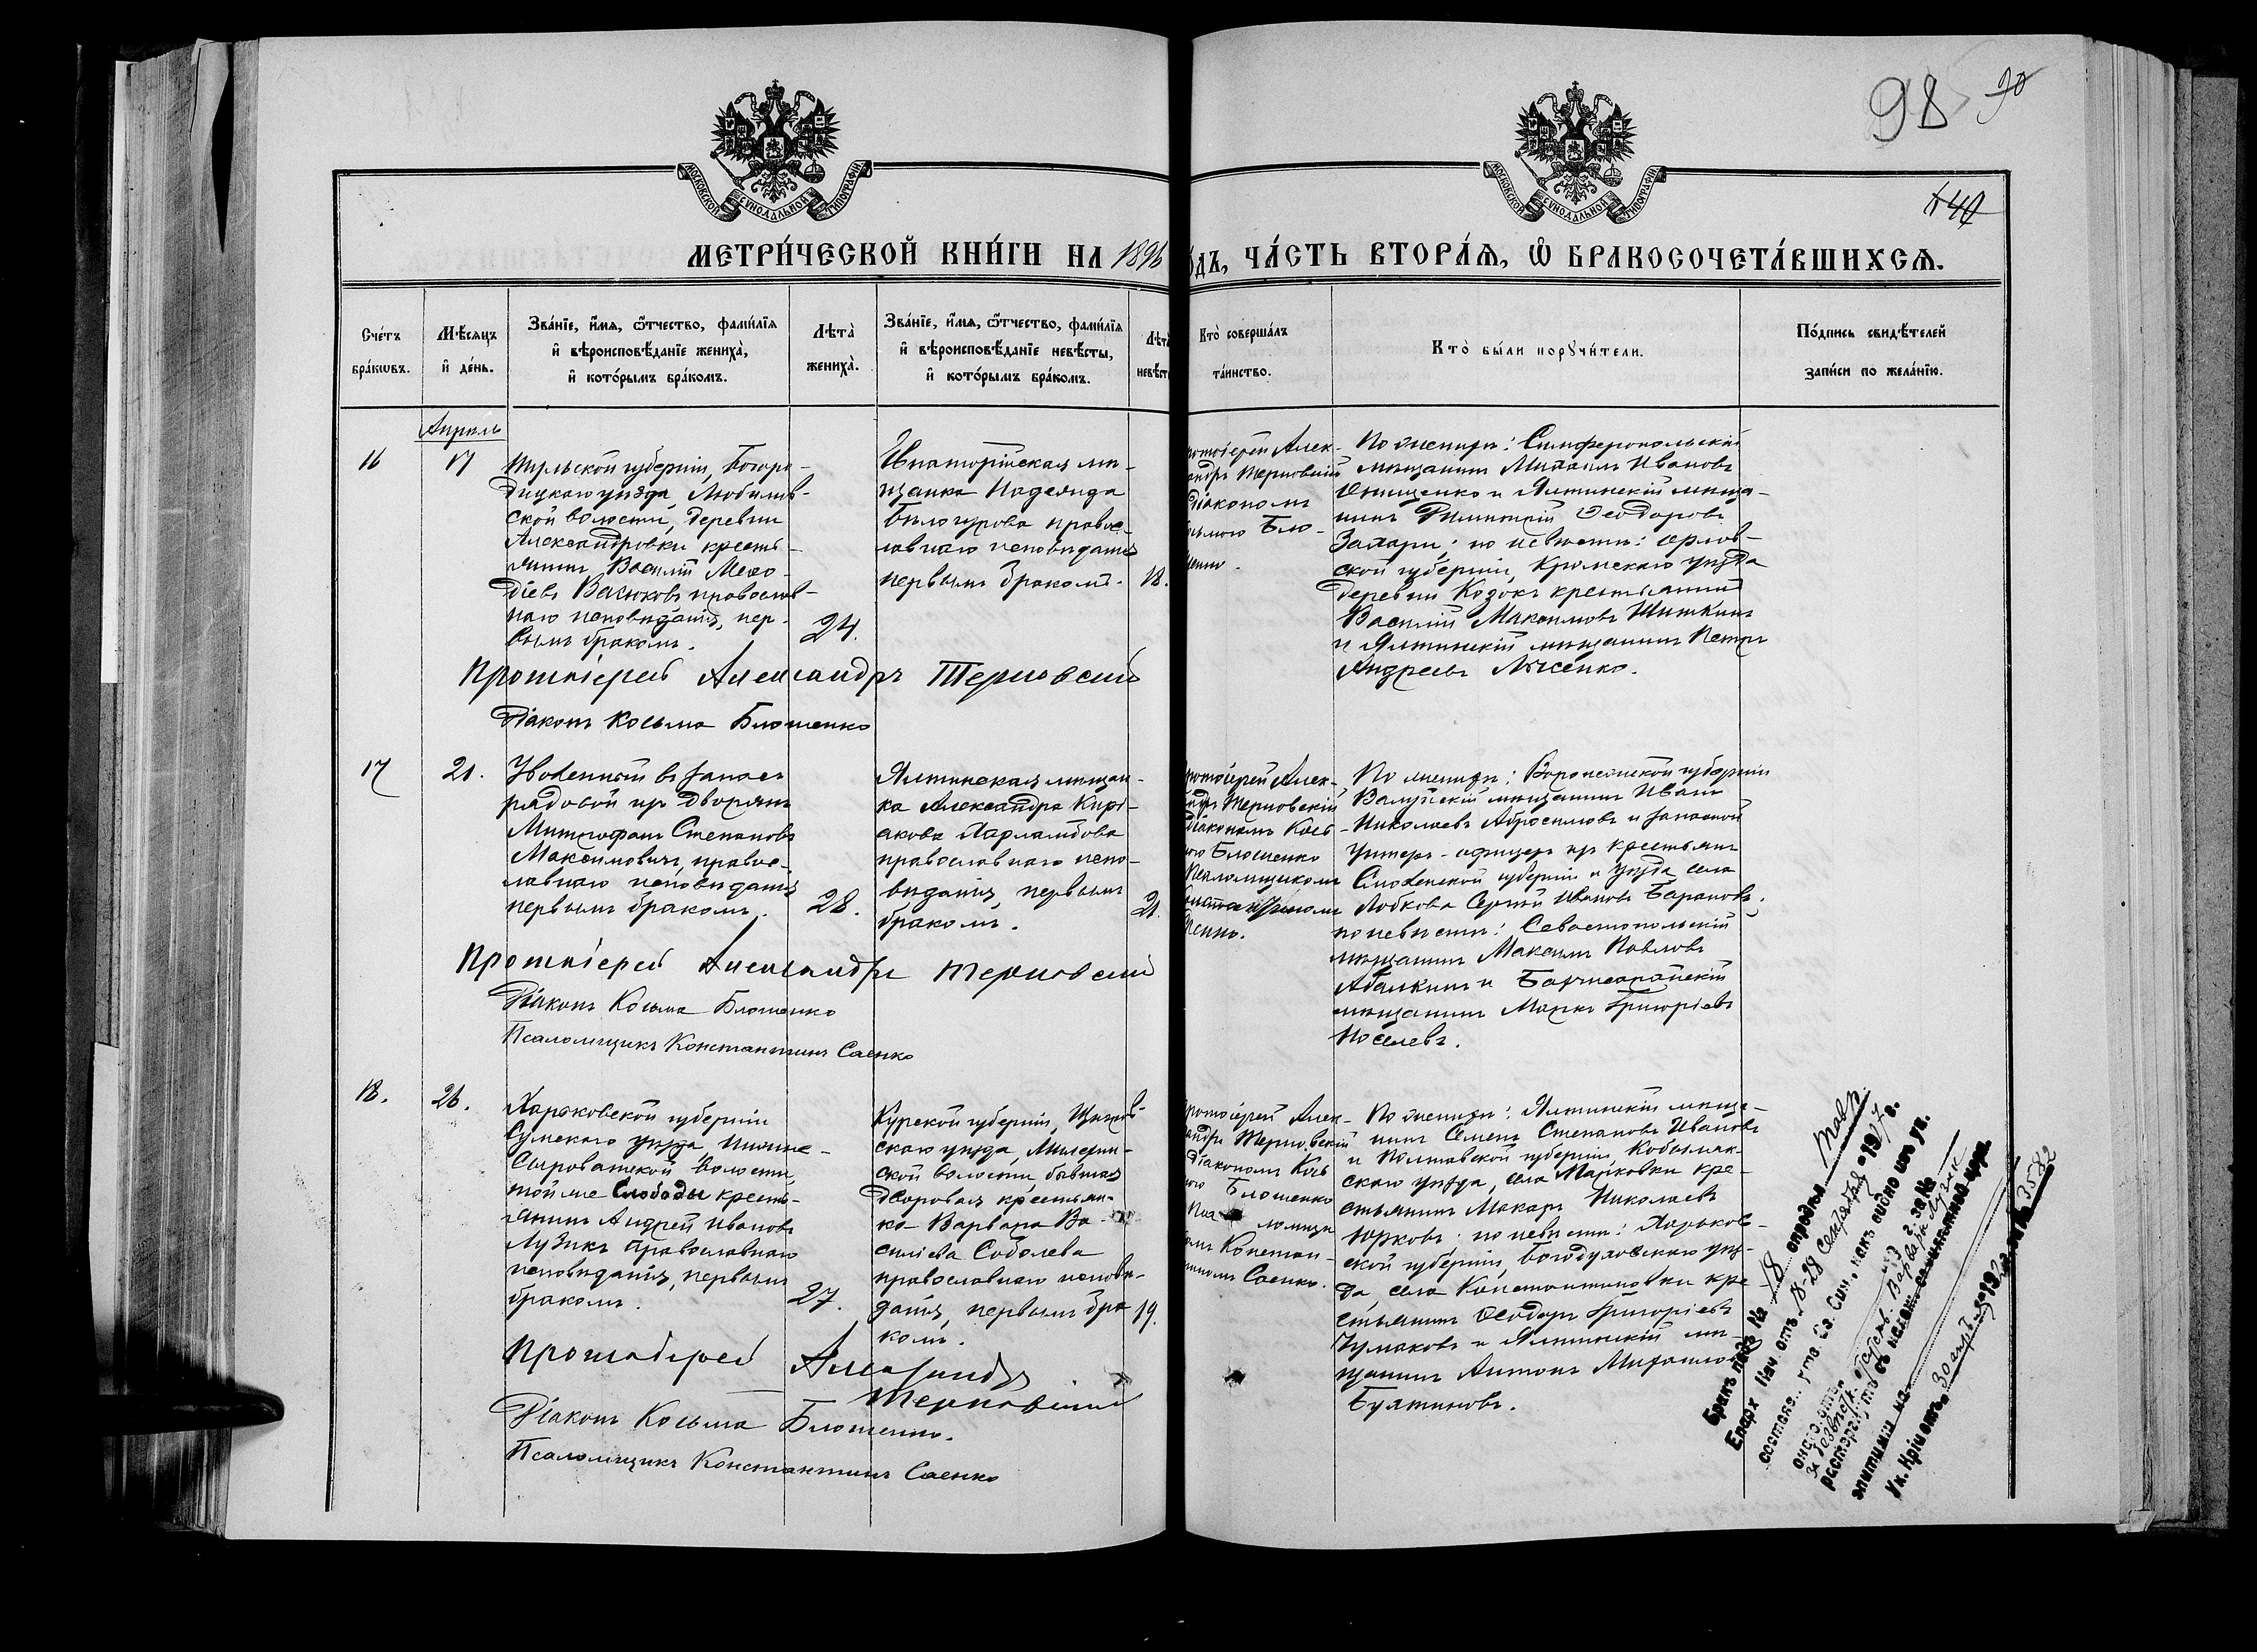 98
90
МОСКОВСКОЙ СѴНОДАЛЬНОЙ ТИПОГРАФІИ
МОСКОВСКОЙ СѴНОДАЛЬНОЙ ТИПОГРАФІИ
МЕТРИ́ЧЕСКОЙ КНИ́ГИ НА 1896
ÓДЪ, ЧА́СТЬ ВТОРА́Ѧ, Ѽ БРАКОСОЧЕТА́ВШИХСѦ.
Сче́тъ бра́кѡвъ.
Мѣ́сяцъ и҆ де́нь.
Зва́нїе, и҆́мя, ѻ҆́тчество, фами́лїя
и҆ вѣроисповѣ́данїе жениха̀,
и҆ кото́рымъ бра́комъ.
Лѣта̀ жениха̀.
Зва́нїе, и҆́мя, ѻ҆́тчество, фами́лїя
и҆ вѣроисповѣ́данїе невѣ́сты,
и҆ кото́рымъ бра́комъ.
Лѣта̀ невѣст
Кто̀ соверша́лъ
та́инство.
Кто̀ бы́ли порꙋчи́тели.
По́дпись свидѣ́телей
за́писи по жела́нїю.
Апрель
16
17
Тульской губерніи, Богоро-
дицкаго уѣзда, Любимов-
ской волости, деревни
Александровки кресть-
янинъ Василій Меѳо-
діевъ Васюковъ православ-
наго исповѣданія, пер-
вымъ бракомъ.
24.
Евпаторійская мѣ-
щанка Надежда
Бѣлогурова правос-
лавнаго исповѣданія
первымъ бракомъ.
18.
ротоіерей Алек-
андръ Терновскій
Діакономъ
ьмою Бло-
шенко.
По женихѣ: Симферопольскій
мѣщанинъ Михаилъ Ивановъ
Онищенко и Ялтинскій мѣща-
нинъ Димитрій Ѳеодоровъ
Захари; по невѣстѣ: Орлов-
ской губерніи, Кромскаго уѣзда
деревни Козокъ крестьянинъ
Василій Максимовъ Шишкинъ
и Ялтинскій мѣщанинъ Петръ
Андреевъ Лысенко.
Протоіерей Александръ Терновскій
Діаконъ Косьма Блошенко
17
21.
Уволенный въ запасъ
рядовой изъ дворянъ
Митрофанъ Степановъ
Максимовичъ, правос-
лавнаго исповѣданія
первымъ бракомъ.
28.
Ялтинская мѣщан-
ка Александра Кирі-
акова Харламбова
православнаго испо-
вѣданія, первымъ
бракомъ.
21.
ротоіерей Алек-
андръ Терновскій
Діакономъ Кось-
мою Блошенко
Псаломщикомъ
По женихѣ: Воронежской губерніи
Валуйскій мѣщанинъ Иванъ
Николаевъ Абросимовъ и запасной
унтеръ-офицеръ изъ крестьянъ
Смоленской губерніи и уѣзда села
Лобкова Сергѣй Ивановъ Барановъ;
по невѣстѣ: Севастопольскій
мѣщанинъ Максимъ Павловъ
Абалкинъ и Бахчисарайскій
мѣщанинъ Марко Григоріевъ
Протоіерей Александръ Терновскій
Діаконъ Косьма Блошенко
Псаломщикъ Константинъ Саенко
18.
26.
Харьковской губерніи
Сумскаго уѣзда Нижне-
Сыроватской волости,
той же слободы кресть-
янинъ Андрей Ивановъ
Лузикъ православнаго
исповѣданія, первымъ
бракомъ.
27.
Курской губерніи, Щигров-
скаго уѣзда,
ской волости, бывшая
дворовая крестьян-
ка Варвара Ва-
силіева Соболева
православнаго исповѣ-
данія, первымъ бра-
комъ.
19.
ротоіерей Алек-
андръ Терновскій
Діакономъ Кось
мою Блошенко
Пса ломщи
омъ Констан-
тиномъ Саенко.
По женихѣ: Ялтинскій мѣща-
нинъ Семенъ Степановъ Ивановъ
и Полтавской губерніи, Кобыляк-
скаго уѣзда, села Марковки кре-
стьянинъ Макаръ Николаевъ
Юрковъ; по невѣстѣ: Харьков-
ской губерніи, Богодуховскаго уѣз-
да, села Константиновки кре-
стьянинъ Ѳеодоръ Григоріевъ
Чумаковъ и Ялтинскій мѣ-
щанинъ Антонъ Михайловъ
Протоіерей Александръ
Терновскій
Діаконъ Косьма Блошенко.
Псаломщикъ Константинъ Саенко
Бракъ подъ № 18 опредѣл. Тавр.
Епарх Нач. отъ 18-28 Сентября 1917 г.
Св. Син., какъ видно изъ ук.
онаго отъ за №
Варвары Лузик
30 апр
№ 3582